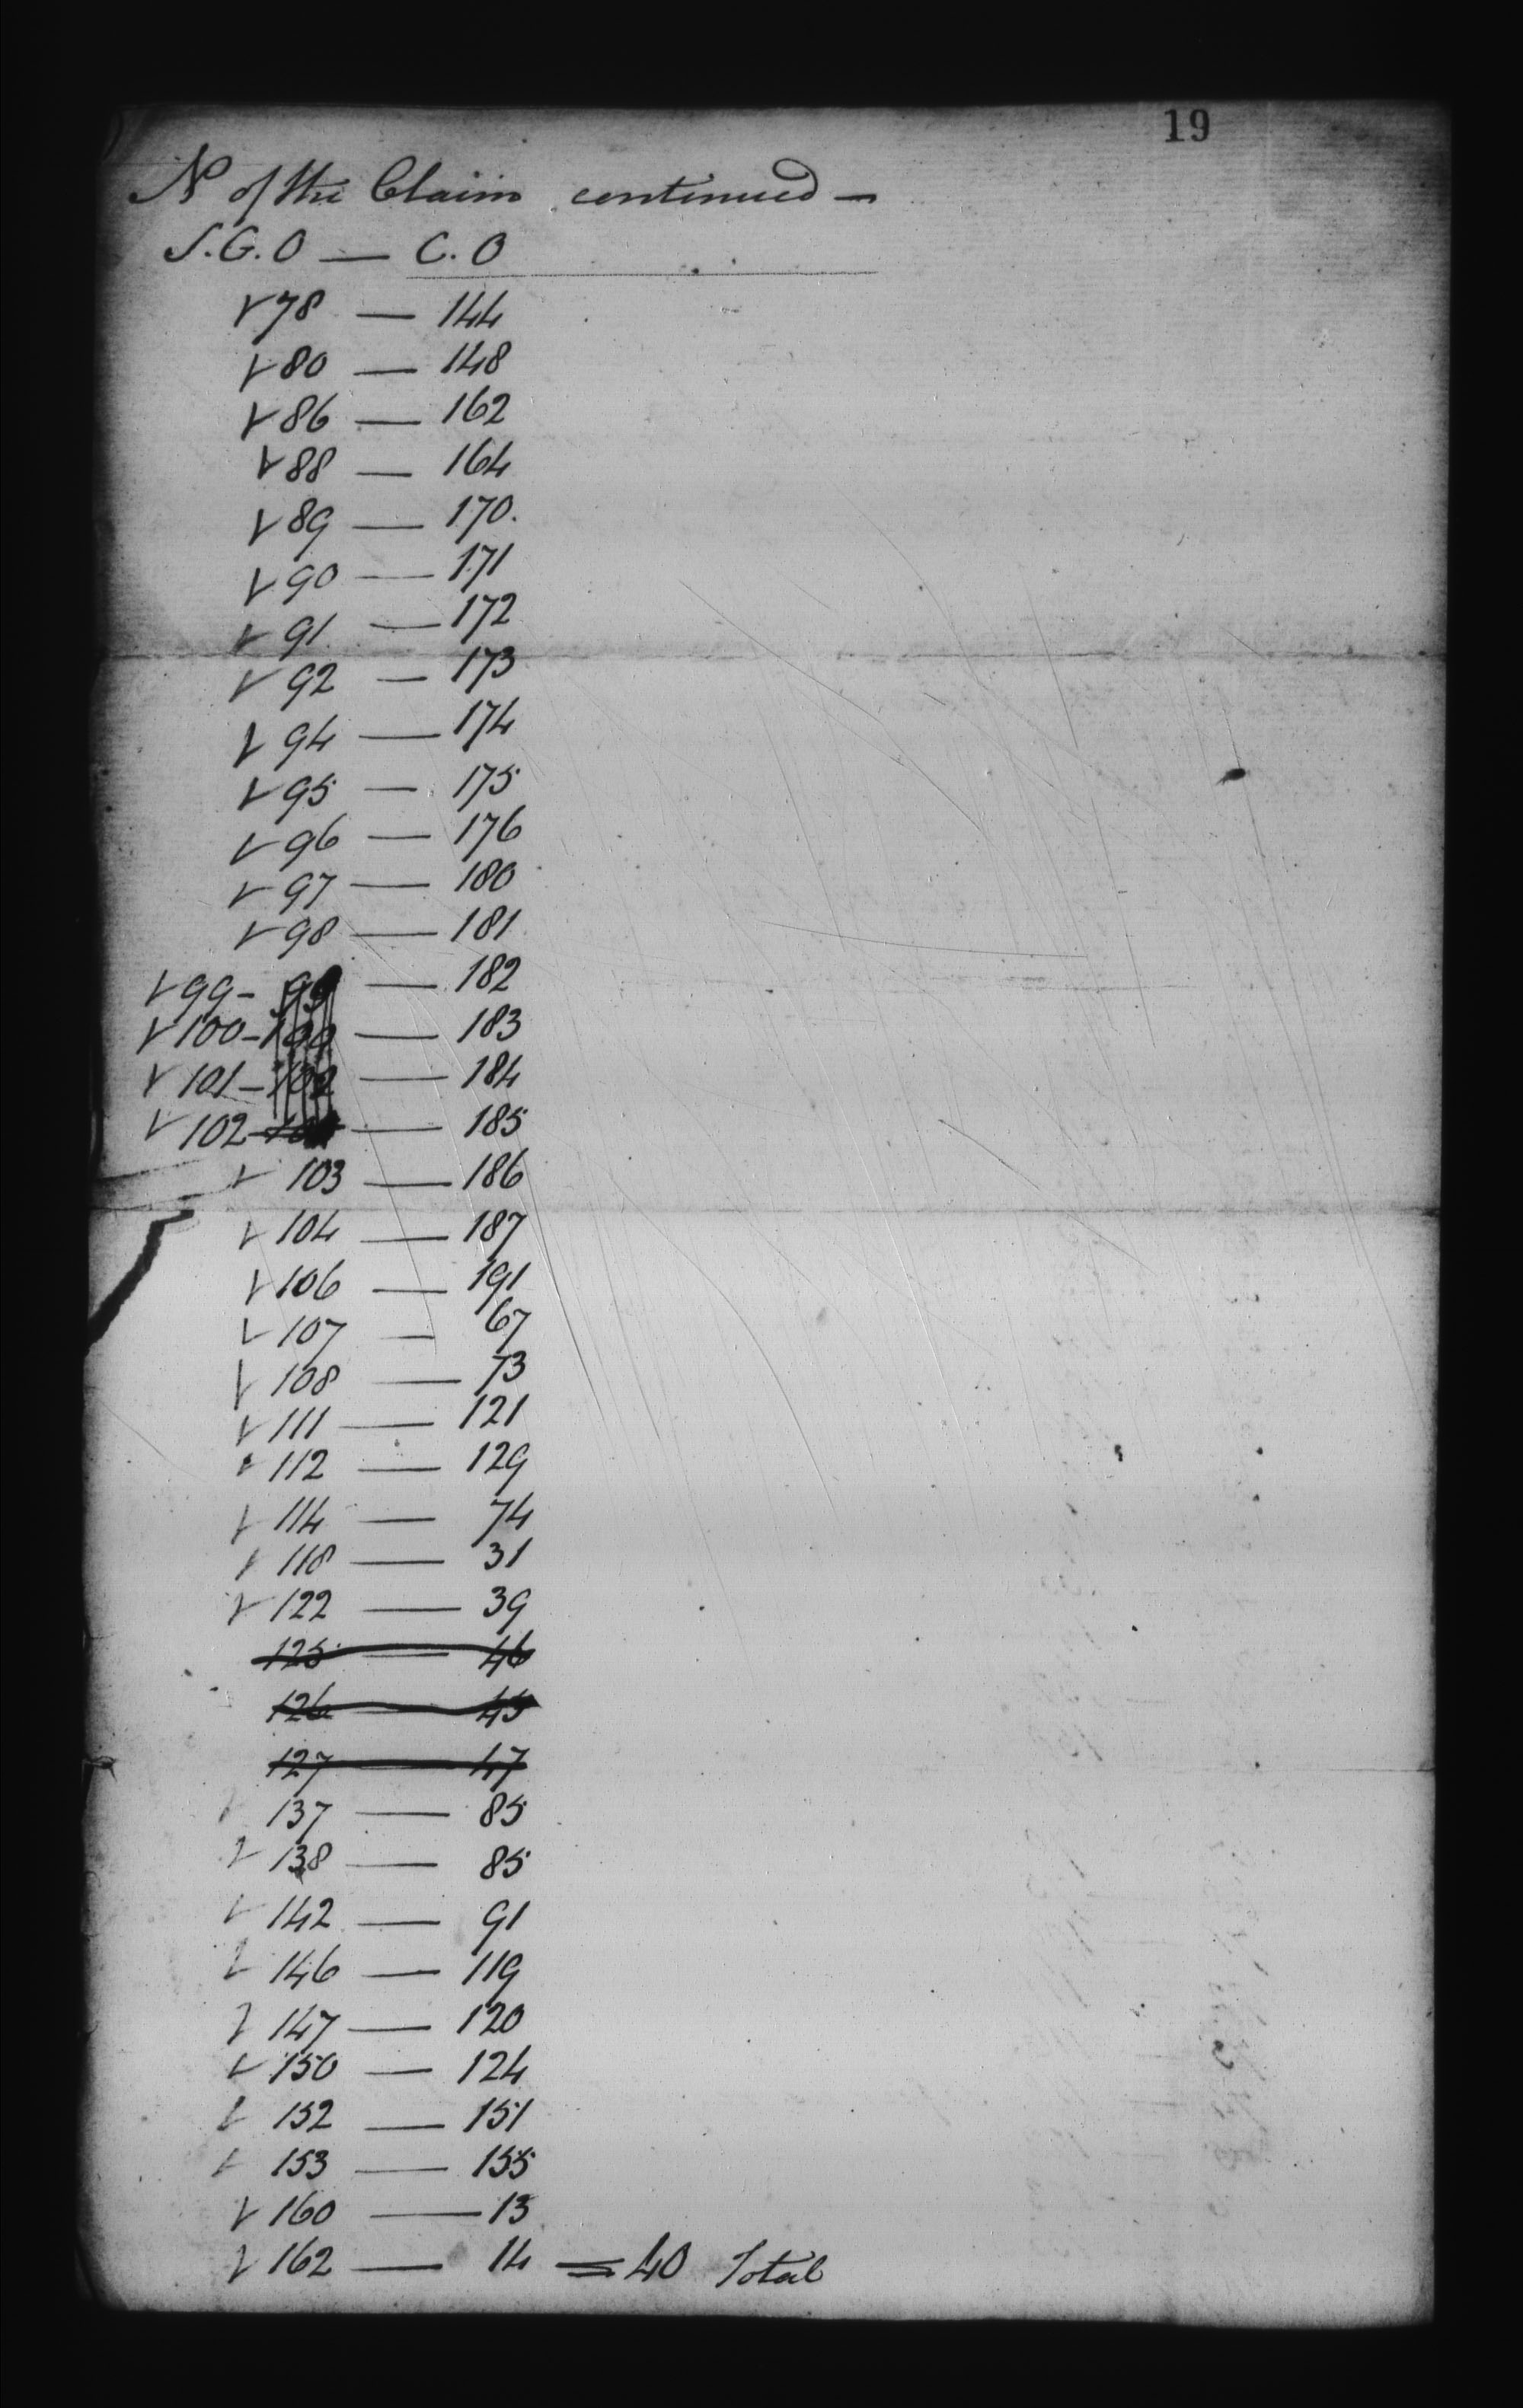 19
No of the Claim continued —
S.G.O — C.O
✓ 78 — 144
✓ 80 — 148
✓ 86 — 162
✓ 88 — 164
✓ 89 — 170.
✓ 90 — 171
✓ 91 — 172
✓ 92 — 173
✓ 94 — 174
✓ 95 — 175
✓ 96 — 176
✓ 97 — 180
✓ 98 — 181
✓ 99 - — 182
✓ 100 - — 183
✓ 101 - — 184
✓ 102 — 185
✓ 103 — 186
✓ 104 — 187
✓ 106 — 191
✓ 107 — 67
✓ 108 — 73
✓ 111 — 121
✓ 112 — 129
✓ 114 — 74
✓ 118 — 31
✓ 122 — 39
125 — 46
126 — 45
127 — 47
✓ 137 — 85
✓ 138 — 85
✓ 142 — 91
✓ 146 — 119
✓ 147 — 120
✓ 150 — 124
✓ 152 — 151
✓ 153 — 155
✓ 160 — 13
✓ 162 — 14 = 40 Total